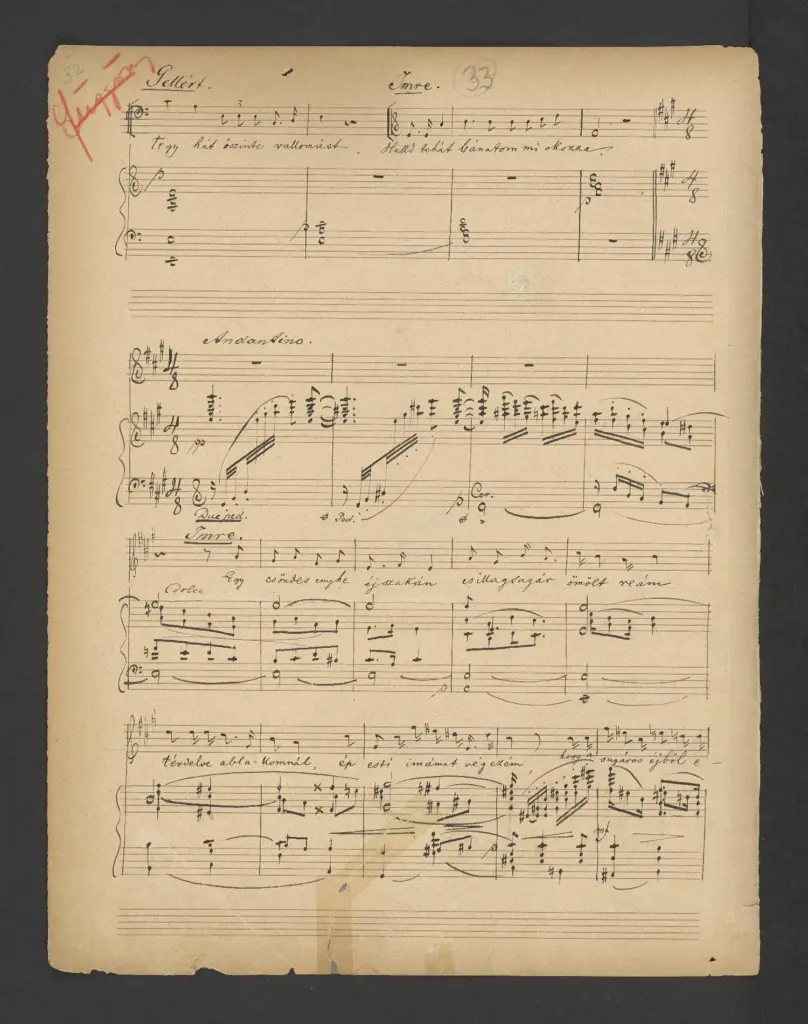 32
Gellért. Imre. 33
Tégy hát őszinte vallomást. Halld tehát bánatom mi okozza?
4/8
p
Andantino.
4/8
pp
Due ped. Ped. p Cor.
Imre.
Egy csöndes enyhe éjszakán csillagsugár ömölt reám
dolce
p
térdelve abla-komnál, ép esti imámat végezém, hogy a sugáros éjből e-
mf